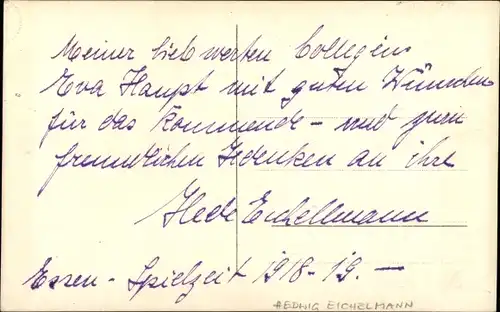 Meiner lieb werten Collegin
Eva Haupt mit guten Wünschen
für das Kommende - und zum
freundlichen Gedenken an ihre
Hede Eichellmann
Essen - Spielzeit 1918-19. -
HEDWIG EICHELMANN